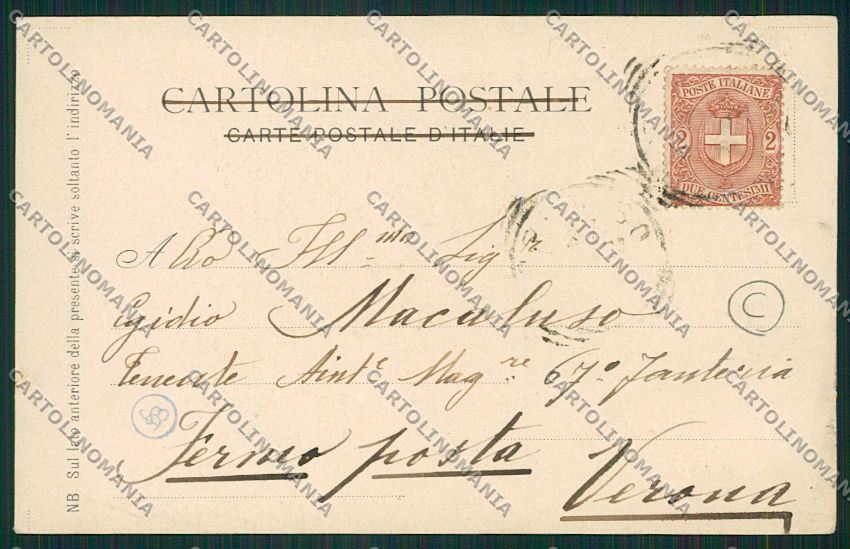 CARTOLINA POSTALE
CARTE POSTALE D'ITALIE
POSTE ITALIANE
2 2
DUE CENTESIMI
All'Ill.mo Sig.r
Egidio Macaluso
Tenente Aiut.e Mag.re 67º Fanteria
Fermo posta
Verona
C
NB Sul lato anteriore della presente si scrive soltanto l'indirizzo
CARTOLINOMANIA